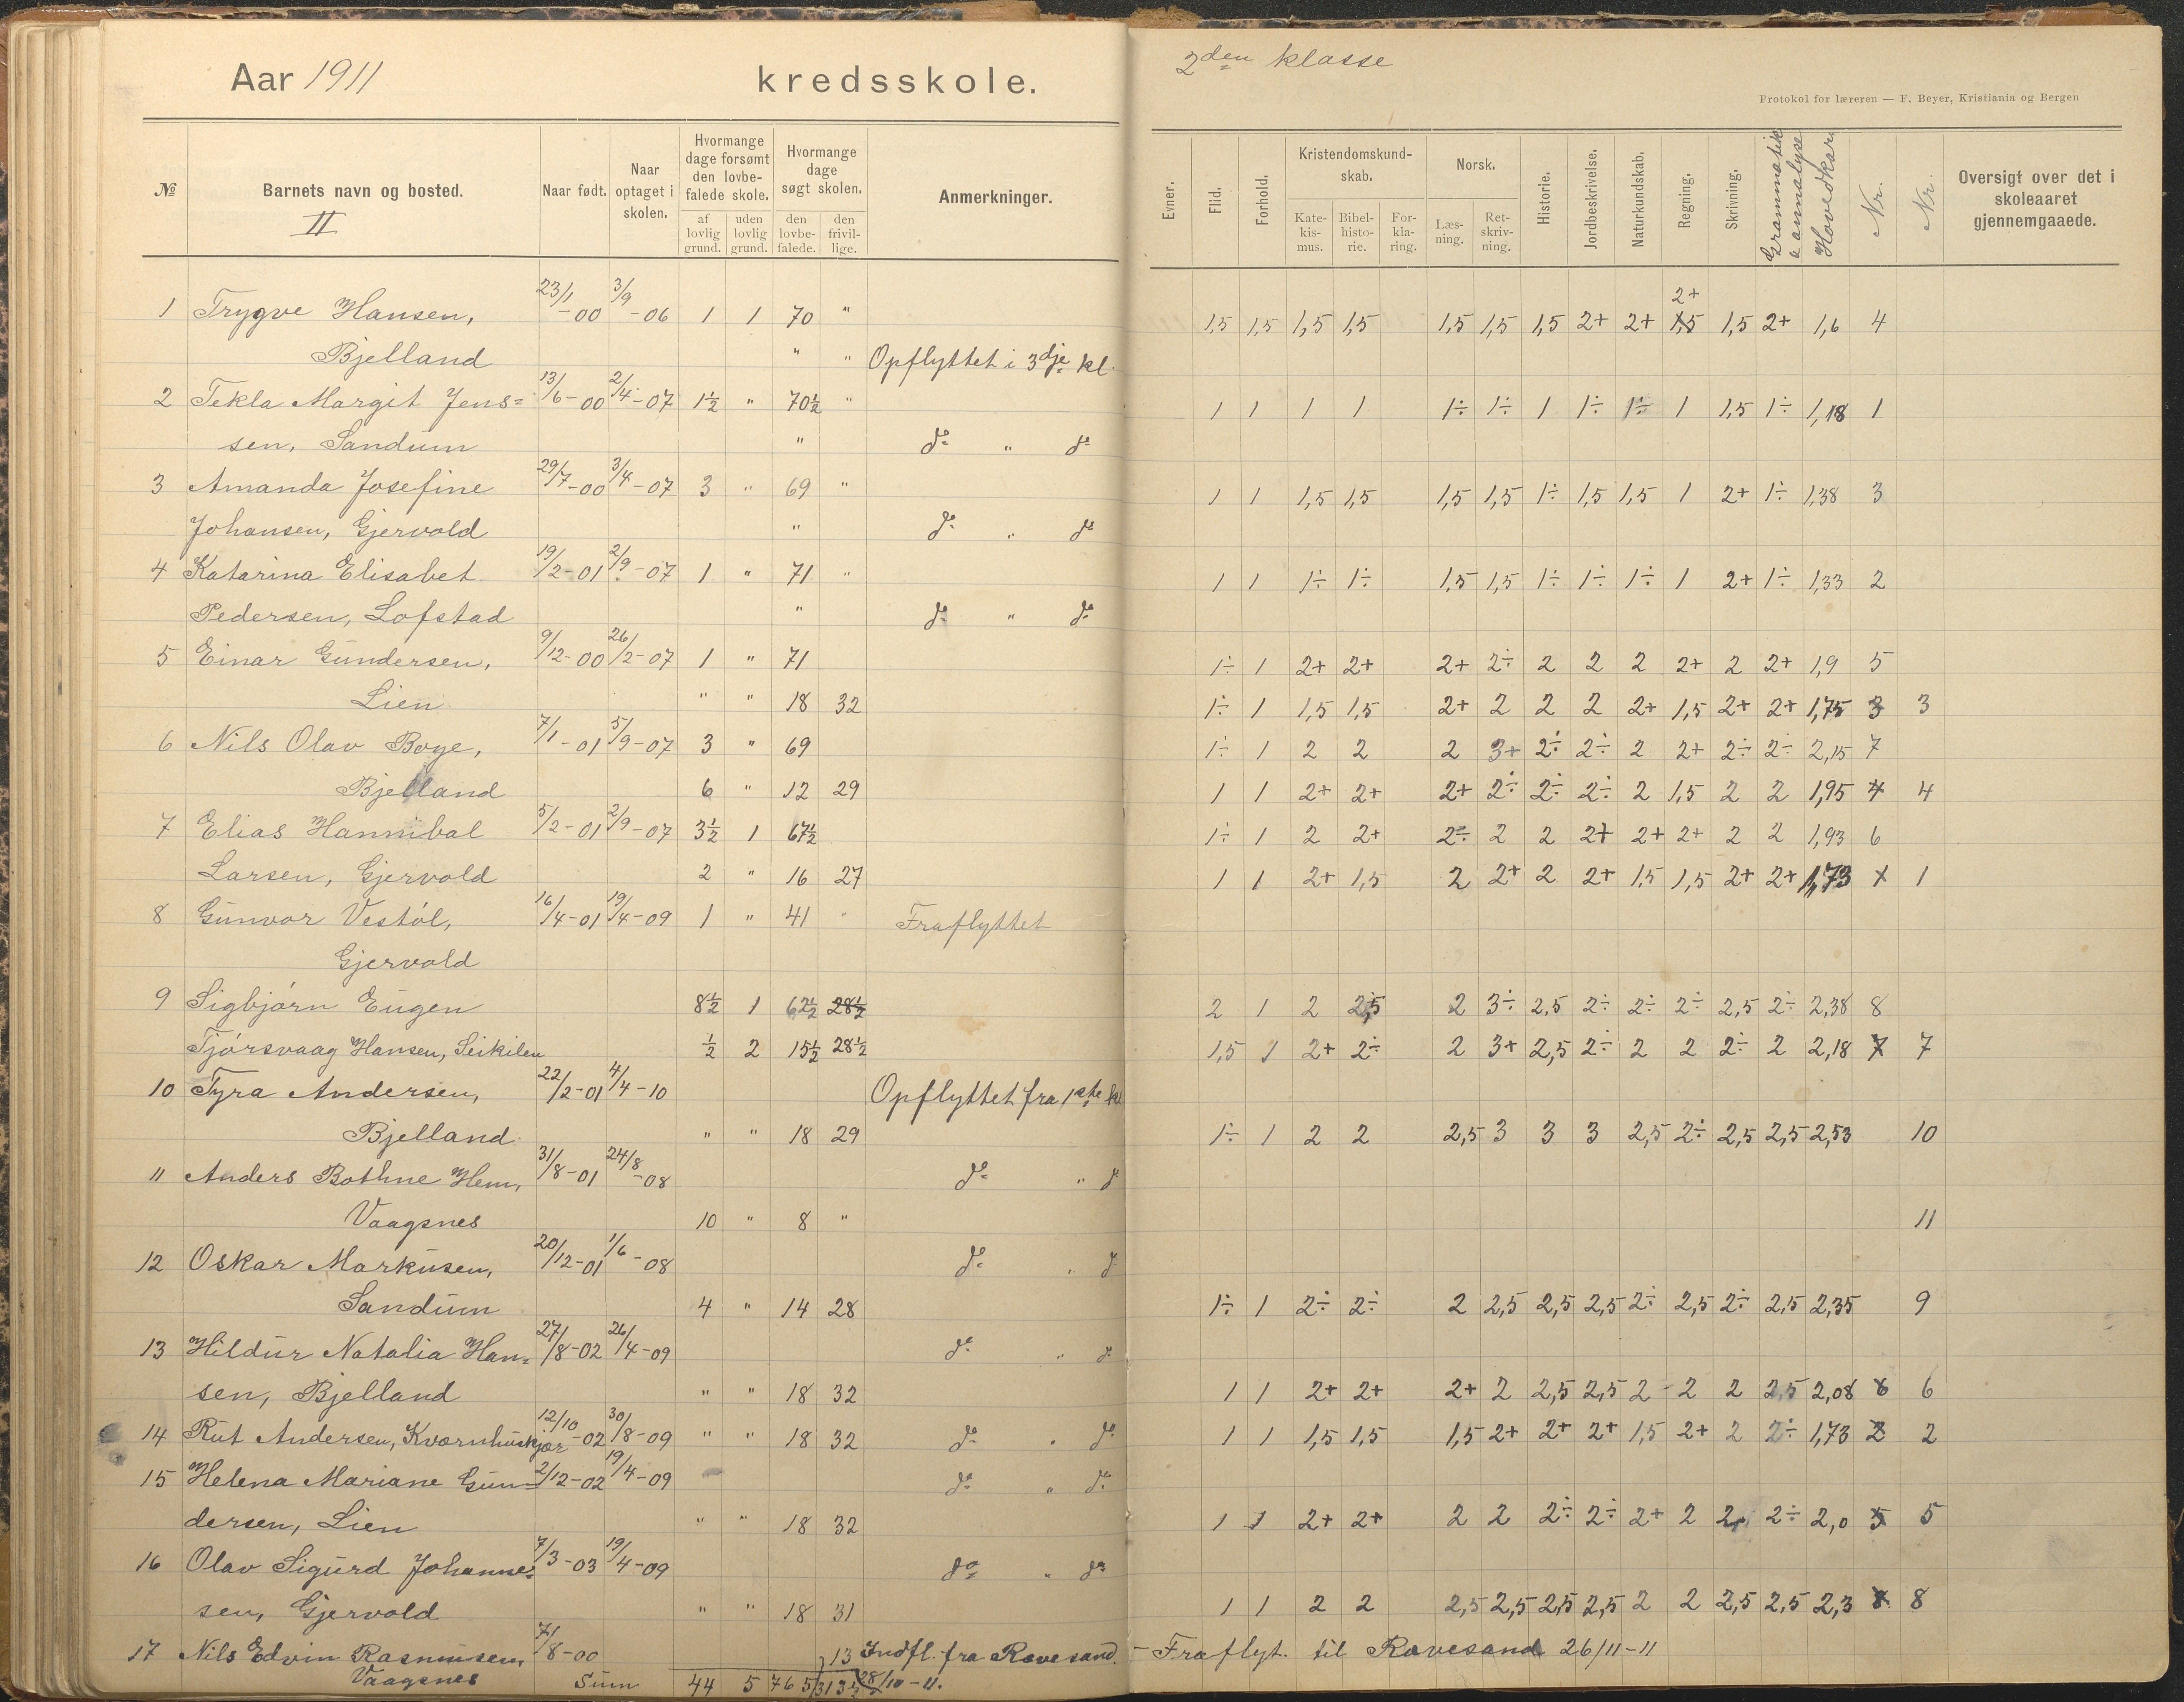 Aar 1911 kredsskole.
2den klasse
Protokol for læreren — F. Beyer, Kristiania og Bergen
№ Barnets navn og bosted. II Naar født. Naar optaget i skolen. Hvormange dage forsømt den lovbefalede skole. af lovlig grund. uden lovlig grund. Hvormange dage søgt skolen. den lovbefalede. den frivillige. Anmerkninger.
Evner. Flid. Forhold. Kristendomskundskab. Katekismus. Bibelhistorie. Forklaring. Norsk. Læsning. Retskrivning. Historie. Jordbeskrivelse. Naturkundskab. Regning. Skrivning. Grammatik & annalyse Hovedkar. Nr. Nr. Oversigt over det i skoleaaret gjennemgaaede.
1 Trygve Hansen, 23/1-00 3/9-06 1 1 70 " 1,5 1,5 1,5 1,5 1,5 1,5 1,5 2+ 2+ 2+ 1,5 1,5 2+ 1,6 4
Bjelland " " Opflyttet i 3dje kl.
2 Tekla Margit Jens= 13/6-00 2/4-07 1½ " 70½ " 1 1 1 1 1÷ 1÷ 1 1÷ 1÷ 1 1,5 1÷ 1,18 1
sen, Sandum " do " do
3 Amanda Josefine 29/7-00 3/4-07 3 " 69 " 1 1 1,5 1,5 1,5 1,5 1÷ 1,5 1,5 1 2+ 1÷ 1,38 3
Johansen, Gjervold " do " do
4 Katarina Elisabet 19/2-01 2/9-07 1 " 71 " 1 1 1÷ 1÷ 1,5 1,5 1÷ 1÷ 1÷ 1 2+ 1÷ 1,33 2
Pedersen, Lofstad " do " do
5 Einar Gundersen, 9/12-00 26/2-07 1 " 71 1÷ 1 2+ 2+ 2+ 2÷ 2 2 2 2+ 2 2+ 1,9 5
Lien " " 18 32 1÷ 1 1,5 1,5 2+ 2 2 2 2+ 1,5 2+ 2+ 1,75 3 3
6 Nils Olav Boye, 7/1-01 5/9-07 3 " 69 1÷ 1 2 2 2 3+ 2÷ 2÷ 2 2+ 2÷ 2÷ 2,15 7
Bjelland 6 " 12 29 1 1 2+ 2+ 2+ 2÷ 2÷ 2÷ 2 1,5 2 2 1,95 4 4
7 Elias Hannibal 5/2-01 2/9-07 3½ 1 67½ 1÷ 1 2 2+ 2÷ 2 2 2+ 2+ 2+ 2 2 1,93 6
Larsen, Gjervold 2 " 16 27 1 1 2+ 1,5 2 2+ 2 2+ 1,5 1,5 2+ 2+ 1,73 1 1
8 Gunvor Vestøl, 16/4-01 19/4-09 1 " 41 " Fraflyttet
Gjervold
9 Sigbjørn Eugen 8½ 1 62½ 28½ 2 1 2 2,5 2 3÷ 2,5 2÷ 2÷ 2÷ 2,5 2÷ 2,38 8
Tjørsvaag Hansen, Leikilen ½ 2 15½ 28½ 1,5 1 2+ 2÷ 2 3+ 2,5 2÷ 2 2 2÷ 2 2,18 7 7
10 Tyra Andersen, 22/2-01 4/4-10 Opflyttet fra 1ste kl
Bjelland " " 18 29 1÷ 1 2 2 2,5 3 3 3 2,5 2÷ 2,5 2,5 2,53 10
11 Anders Bothne Hem, 31/8-01 24/8-08 do " d
Vaagsnes 10 " 8 " 11
12 Oskar Markusen, 20/12-01 1/6-08 do " d
Sandum 4 " 14 28 1÷ 1 2÷ 2÷ 2 2,5 2,5 2,5 2÷ 2,5 2÷ 2,5 2,35 9
13 Hildur Natalia Han= 27/8-02 26/4-09 do " do
sen, Bjelland " " 18 32 1 1 2+ 2+ 2+ 2 2,5 2,5 2 2 2 2,5 2,08 6 6
14 Rut Andersen, Kvernhuskjær 12/10-02 30/8-09 " " 18 32 do " do 1 1 1,5 1,5 1,5 2+ 2+ 2+ 1,5 2+ 2 2÷ 1,73 2 2
15 Helena Mariane Gun= 2/12-02 19/4-09 do " do
dersen, Lien " " 18 32 1 1 2+ 2+ 2 2 2÷ 2÷ 2+ 2 2 2÷ 2,0 5 5
16 Olav Sigurd Johanne= 7/3-03 19/4-09 do " do
sen, Gjervold " " 18 31 1 1 2 2 2,5 2,5 2,5 2,5 2 2 2,5 2,5 2,3 8 8
17 Nils Edvin Rasmusen, 7/8-00 13 Indfl. fra Ravesand. - Fraflyt. til Ravesand 26/11-11
Vaagsnes Sum 44 5 765 313½ 28/10-11.